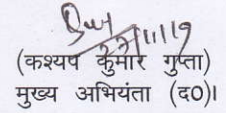 (कश्यप कुमार गुप्ता)
मुख्य अभियंता (द०)।